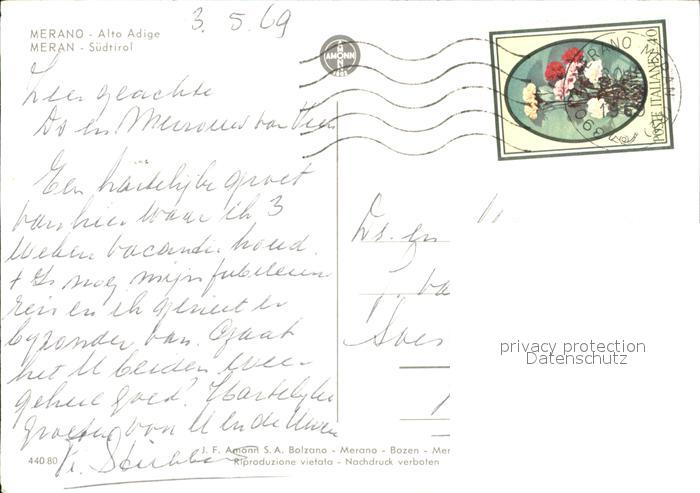 3.5.69
MERANO - Alto Adige
MERAN - Südtirol
AMONN
Zeer geachte
Ds en Mevrouw van
Een hartelijke groet
van hier waar ik 3
weken vacantie houd.
+ Is nog mijn jubileum
reis en ik geniet er
byzonder van. Gaat
het U beiden weer
geheel goed? Hartelijke
groeten van U en de Uwen
Ds. en
J. va
Soes
MERANO
POSTE ITALIANE L. 40
privacy protection
Datenschutz
J. F. Amonn S.A. Bolzano - Merano - Bozen - Mer
440 80
Riproduzione vietata - Nachdruck verboten